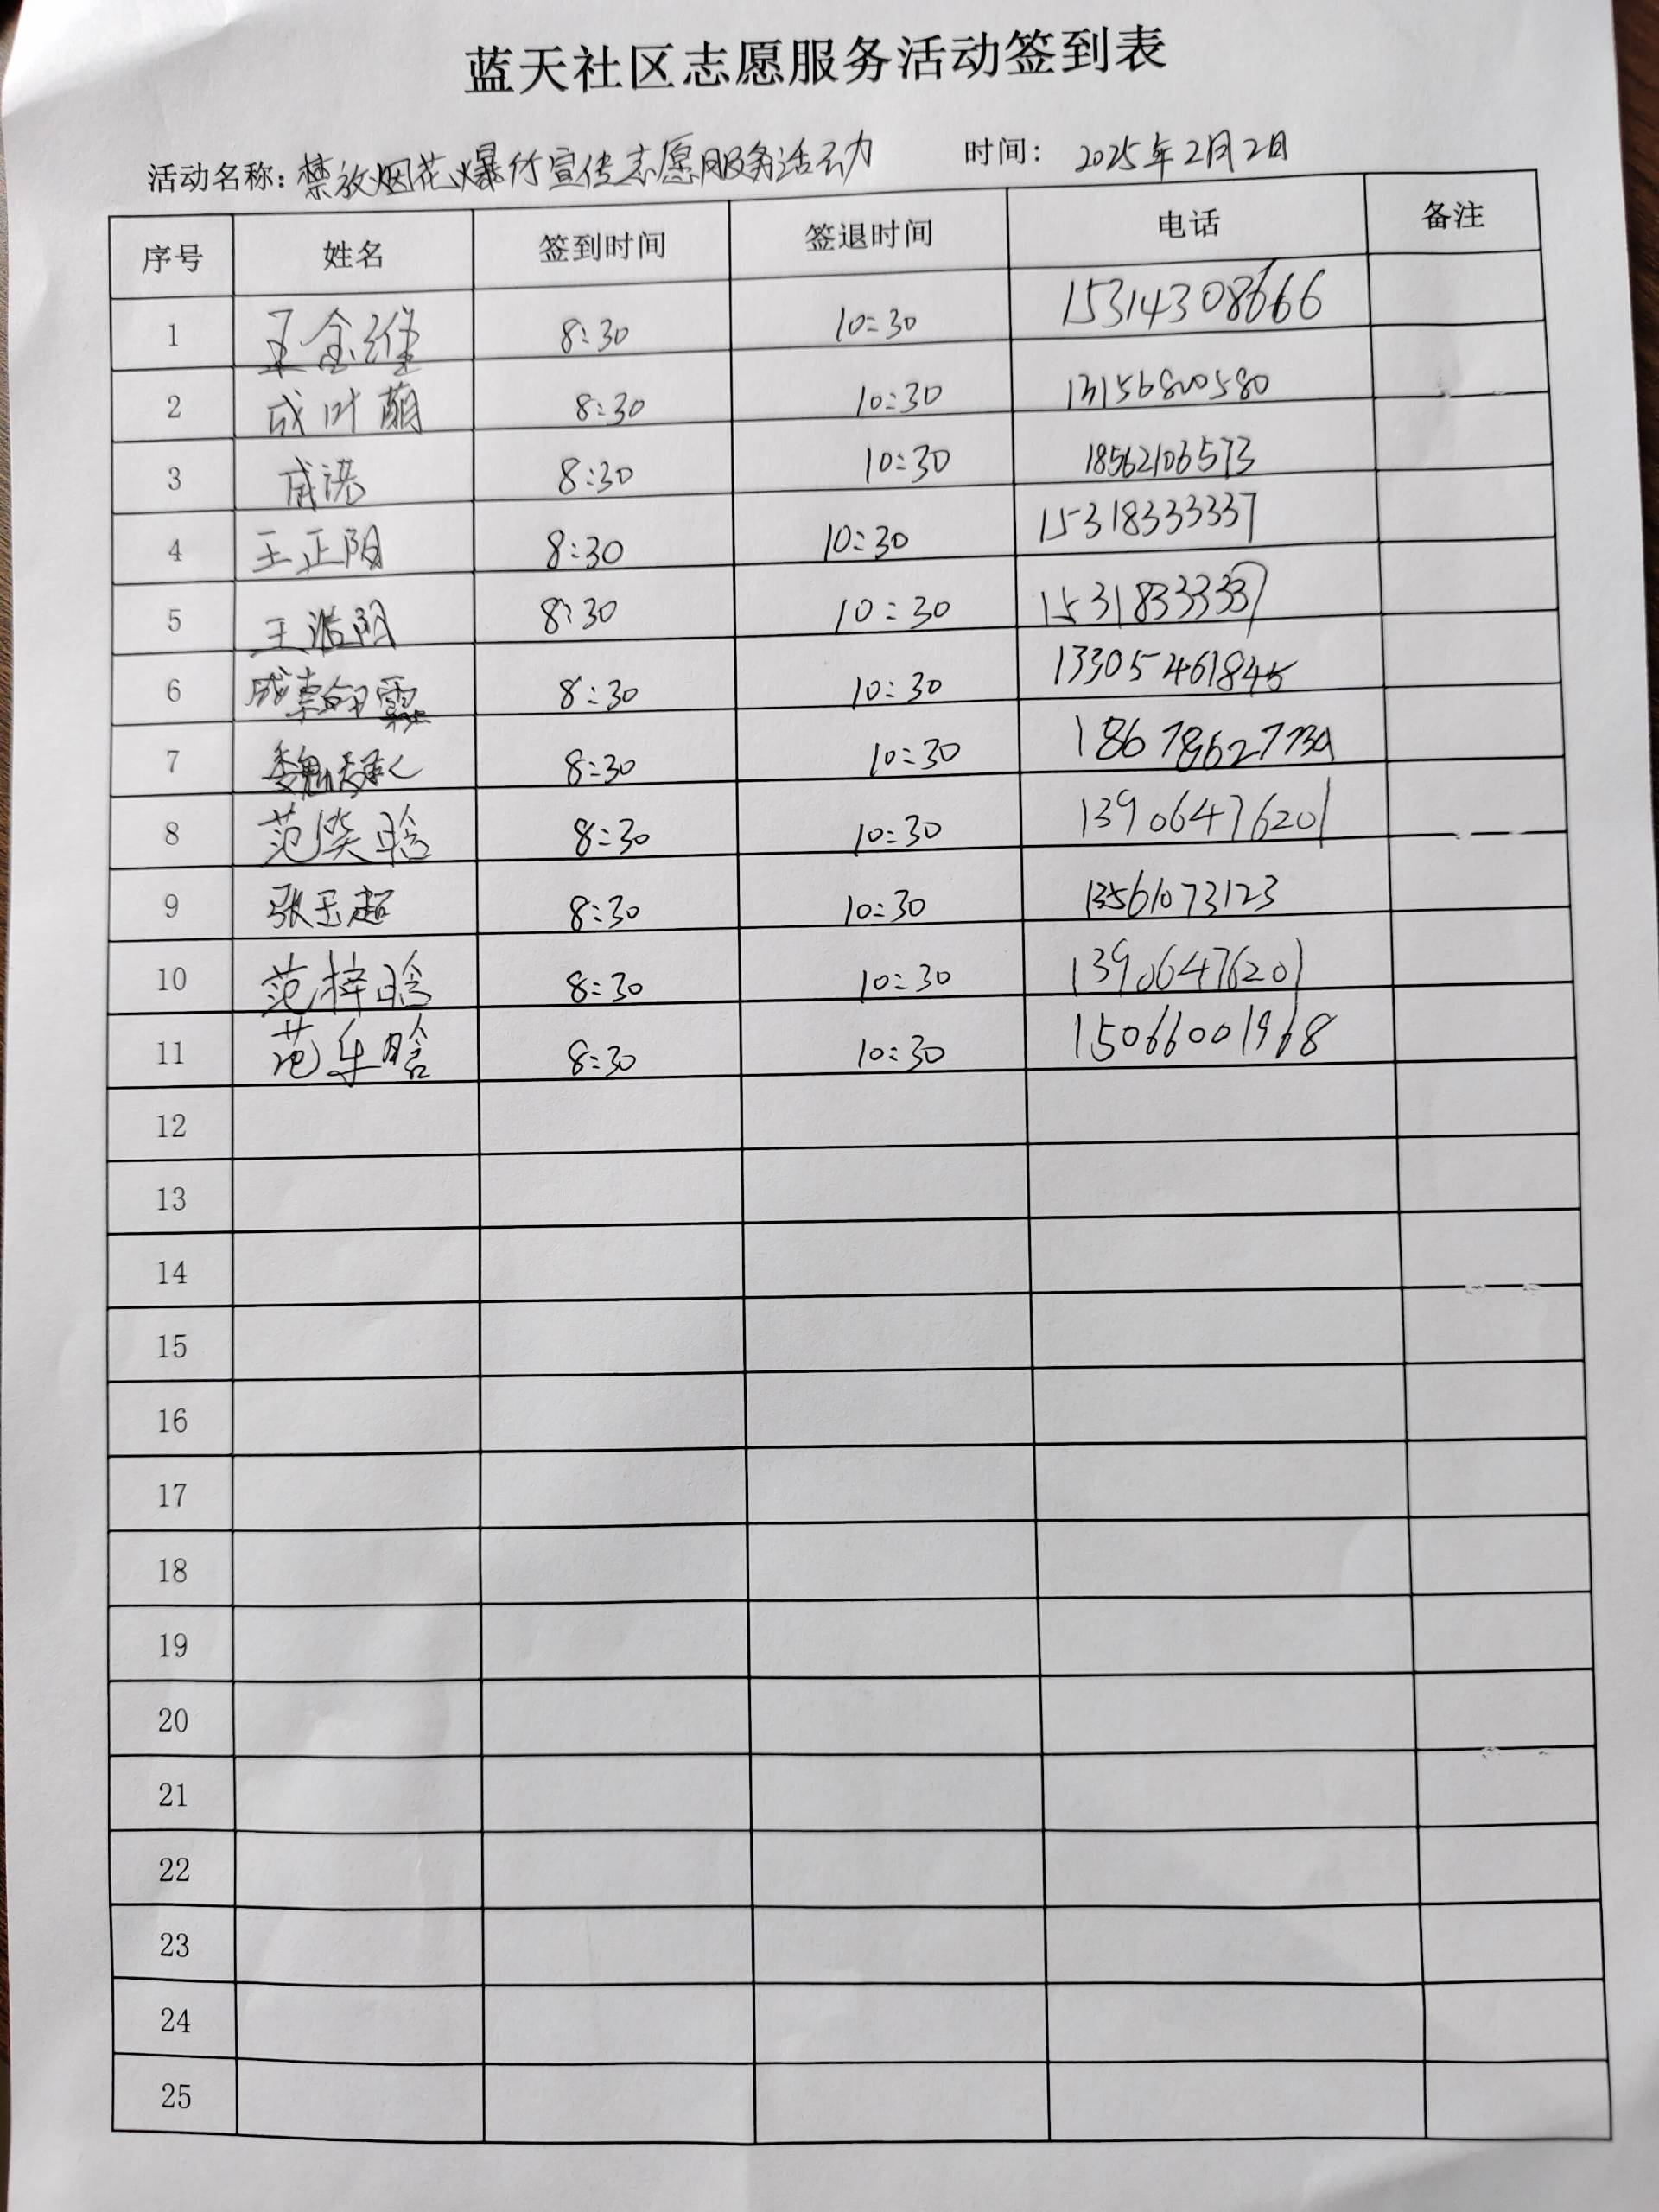 蓝天社区志愿服务活动签到表
活动名称：禁放烟花爆竹宣传志愿服务活动 时间： 2025年2月2日
序号 姓名 签到时间 签退时间 电话 备注
1 王金维 8:30 10:30 15314308666
2 成叶萌 8:30 10:30 13156800580
3 8:30 10:30 18562106573
4 王正阳 8:30 10:30 15318333337
5 王浩阳 8:30 10:30 15318333337
6 8:30 10:30 13305461845
7 8:30 10:30
8 范筱晗 8:30 10:30 13906476201
9 张玉超 8:30 10:30 13561073123
10 范梓晗 8:30 10:30 13906476201
11 范乐晗 8:30 10:30 15066001968
12
13
14
15
16
17
18
19
20
21
22
23
24
25